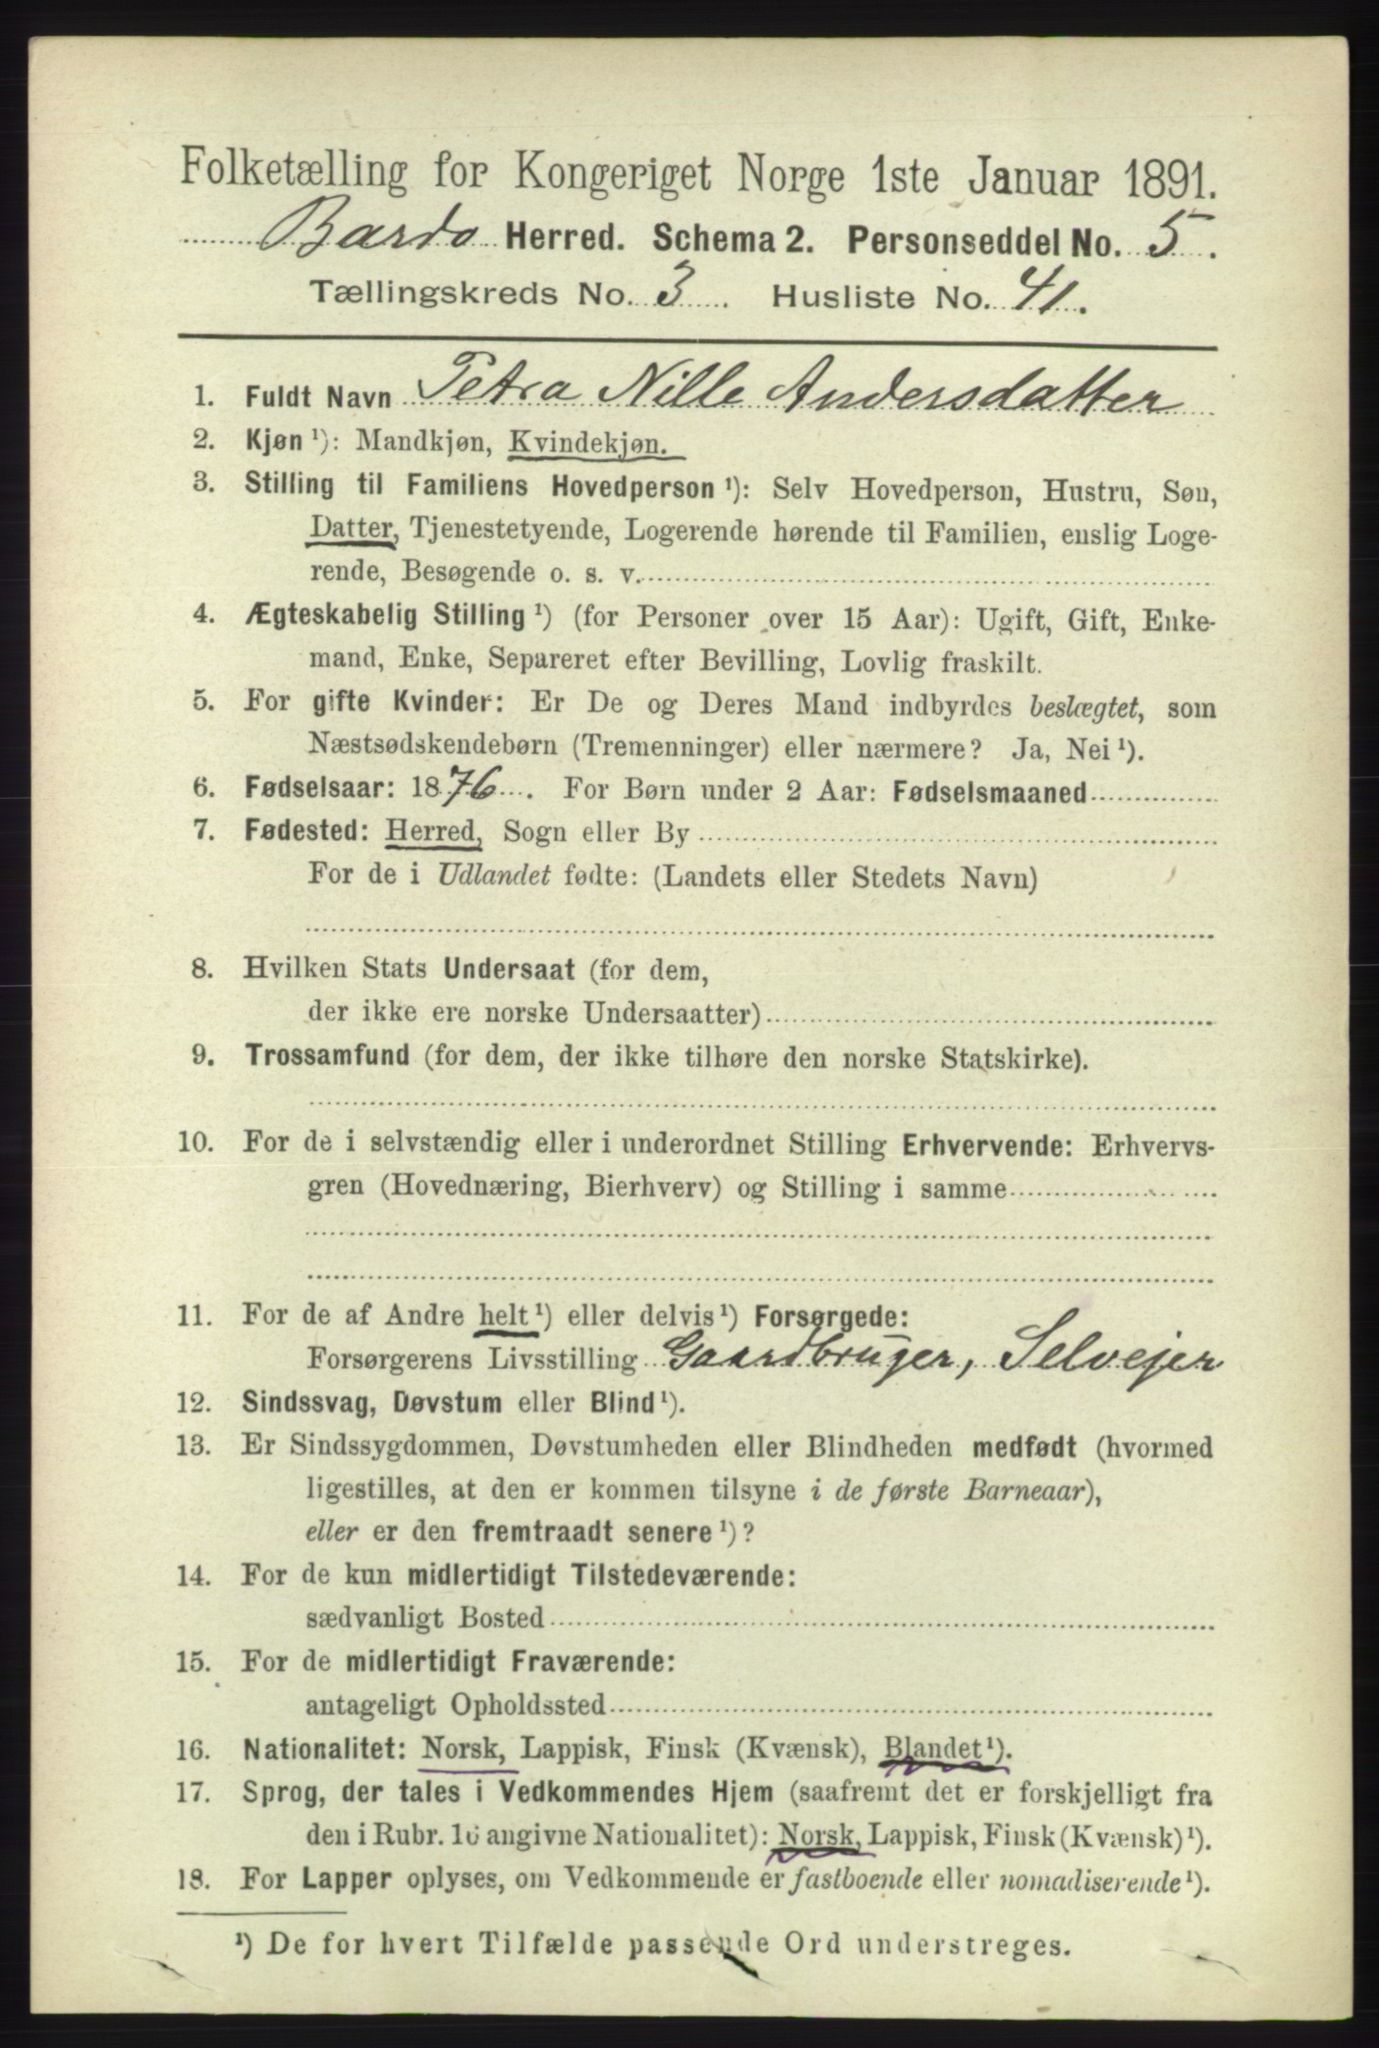 Folketælling for Kongeriget Norge 1ste Januar 1891.
Bardo Herred. Schema 2. Personseddel No. 5.
Tællingskreds No. 3. Husliste No. 41.
1. Fuldt Navn Petra Nille Andersdatter
2. Kjøn¹): Mandkjøn, Kvindekjøn.
3. Stilling til Familiens Hovedperson¹): Selv Hovedperson, Hustru, Søn,
Datter, Tjenestetyende, Logerende hørende til Familien, enslig Loge-
rende, Besøgende o. s. v.
4. Ægteskabelig Stilling¹) (for Personer over 15 Aar): Ugift, Gift, Enke-
mand, Enke, Separeret efter Bevilling, Lovlig fraskilt.
5. For gifte Kvinder: Er De og Deres Mand indbyrdes beslægtet, som
Næstsødskendebørn (Tremenninger) eller nærmere? Ja, Nei¹).
6. Fødselsaar: 1876. For Børn under 2 Aar: Fødselsmaaned
7. Fødested: Herred, Sogn eller By
For de i Udlandet fødte: (Landets eller Stedets Navn)
8. Hvilken Stats Undersaat (for dem,
der ikke ere norske Undersaatter)
9. Trossamfund (for dem, der ikke tilhøre den norske Statskirke).
10. For de i selvstændig eller i underordnet Stilling Erhvervende: Erhvervs-
gren (Hovednæring, Bierhverv) og Stilling i samme
11. For de af Andre helt¹) eller delvis¹) Forsørgede:
Forsørgerens Livsstilling Gaardbruger, Selvejer
12. Sindssvag, Døvstum eller Blind¹).
13. Er Sindssygdommen, Døvstumheden eller Blindheden medfødt (hvormed
ligestilles, at den er kommen tilsyne i de første Barneaar),
eller er den fremtraadt senere¹)?
14. For de kun midlertidigt Tilstedeværende:
sædvanligt Bosted
15. For de midlertidigt Fraværende:
antageligt Opholdssted
16. Nationalitet: Norsk, Lappisk, Finsk (Kvænsk), Blandet¹).
17. Sprog, der tales i Vedkommendes Hjem (saafremt det er forskjelligt fra
den i Rubr. 16 angivne Nationalitet): Norsk, Lappisk, Finsk (Kvænsk)¹).
18. For Lapper oplyses, om Vedkommende er fastboende eller nomadiserende¹).
¹) De for hvert Tilfælde passende Ord understreges.